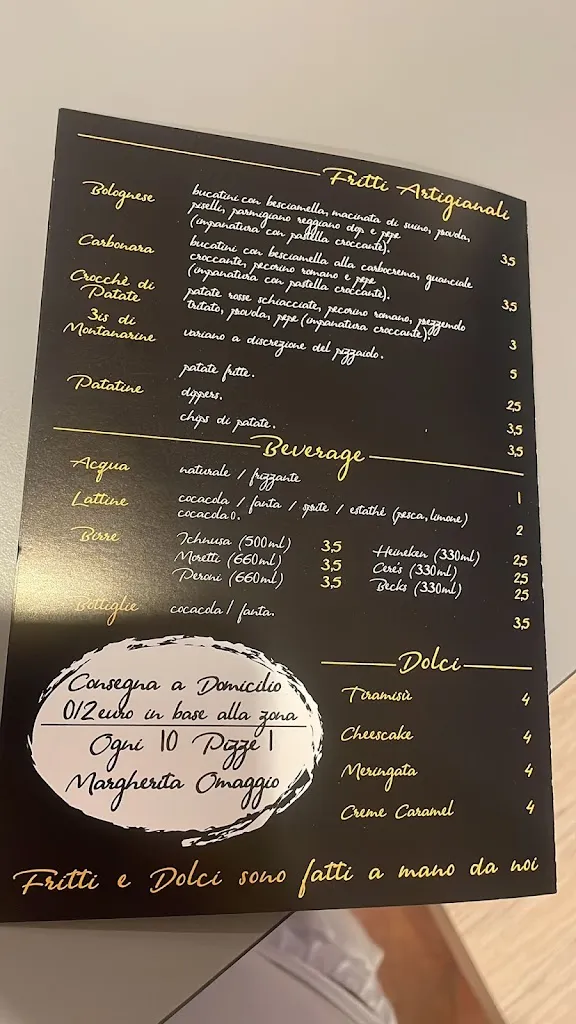 Fritti Artigianali
Bolognese
bucatini con besciamella, macinata di suino, provola,
piselli, parmigiano reggiano dop e pepe
(impanatura con pastella croccante).
3,5
Carbonara
bucatini con besciamella alla carbocrema, guanciale
croccante, pecorino romano e pepe
(impanatura con pastella croccante).
3,5
Crocchè di
Patate
patate rosse schiacciate, pecorino romano, prezzemolo
tritato, provola, pepe (impanatura croccante).
3
3is di
Montanarine
variano a discrezione del pizzaiolo.
5
Patatine
patate fritte.
2,5
dippers.
3,5
chips di patate.
3,5
Beverage
Acqua
naturale / frizzante
1
Lattine
cocacola / fanta / sprite / estathè (pesca, limone)
cocacola 0.
2
Birre
Ichnusa (500ml) 3,5 Heineken (330ml) 2,5
Moretti (660ml) 3,5 Cere's (330ml) 2,5
Peroni (660ml) 3,5 Becks (330ml) 2,5
Bottiglie
cocacola / fanta.
3,5
Consegna a Domicilio
0/2 euro in base alla zona
Ogni 10 Pizze 1
Margherita Omaggio
Dolci
Tiramisù 4
Cheescake 4
Meringata 4
Creme Caramel 4
Fritti e Dolci sono fatti a mano da noi